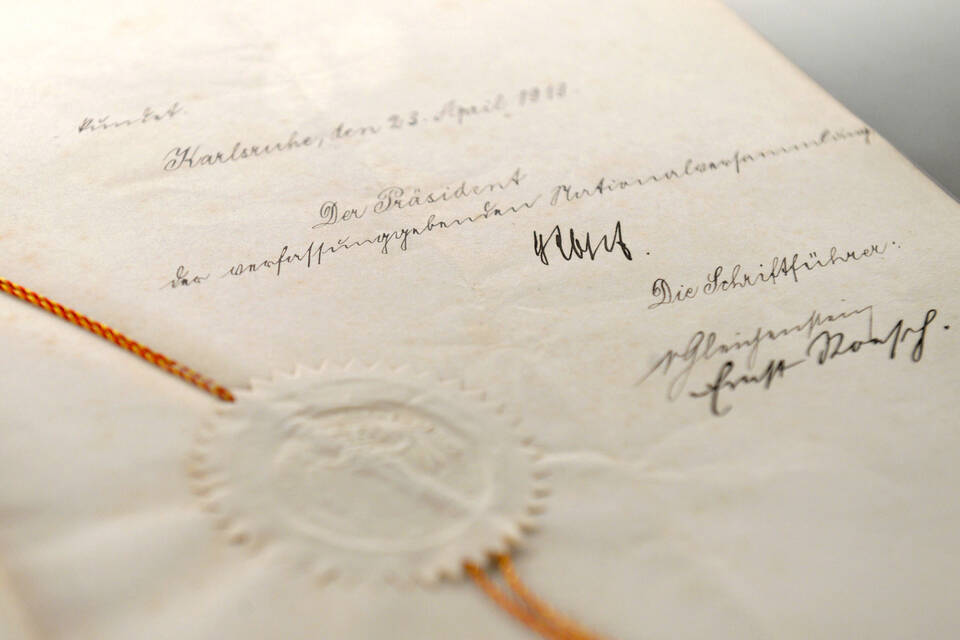 kundet.
Karlsruhe, den 23. April 1919.
Der Präsident
der verfassunggebenden Nationalversammlung
Die Schriftführer:
vGleichenstein
Ernst Roesch.